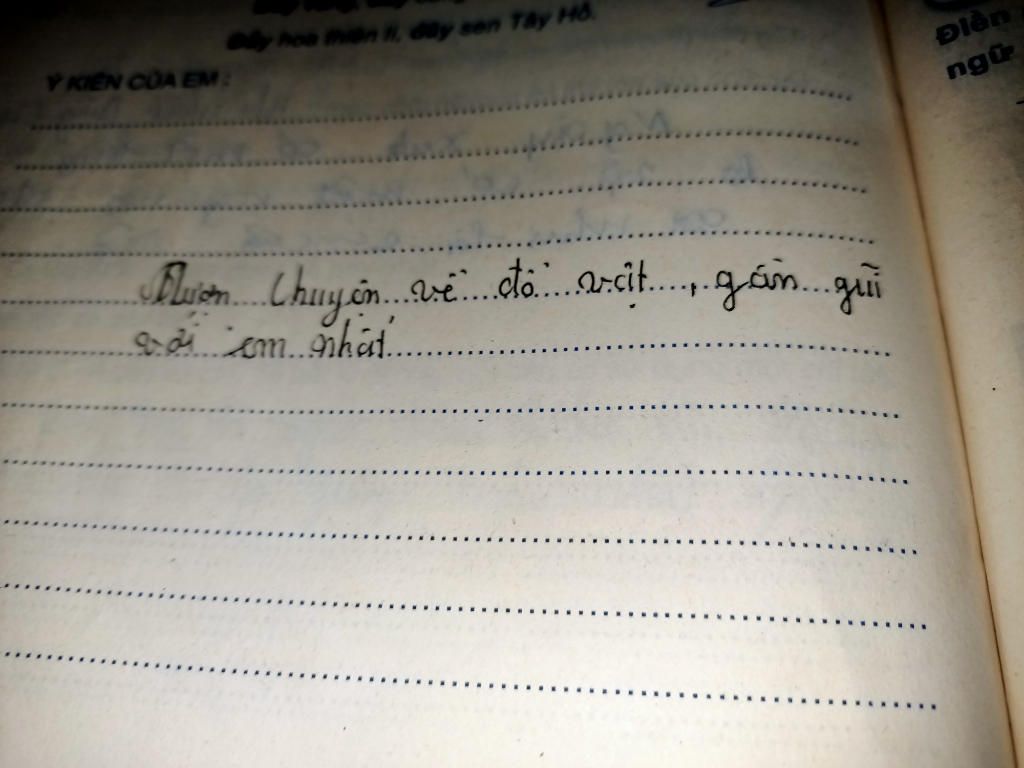 Đây hoa thiên lí, đây sen Tây Hồ.
Ý KIẾN CỦA EM :
Điền
ngữ
Mượn chuyện về đồ vật, gần gũi
với em nhất